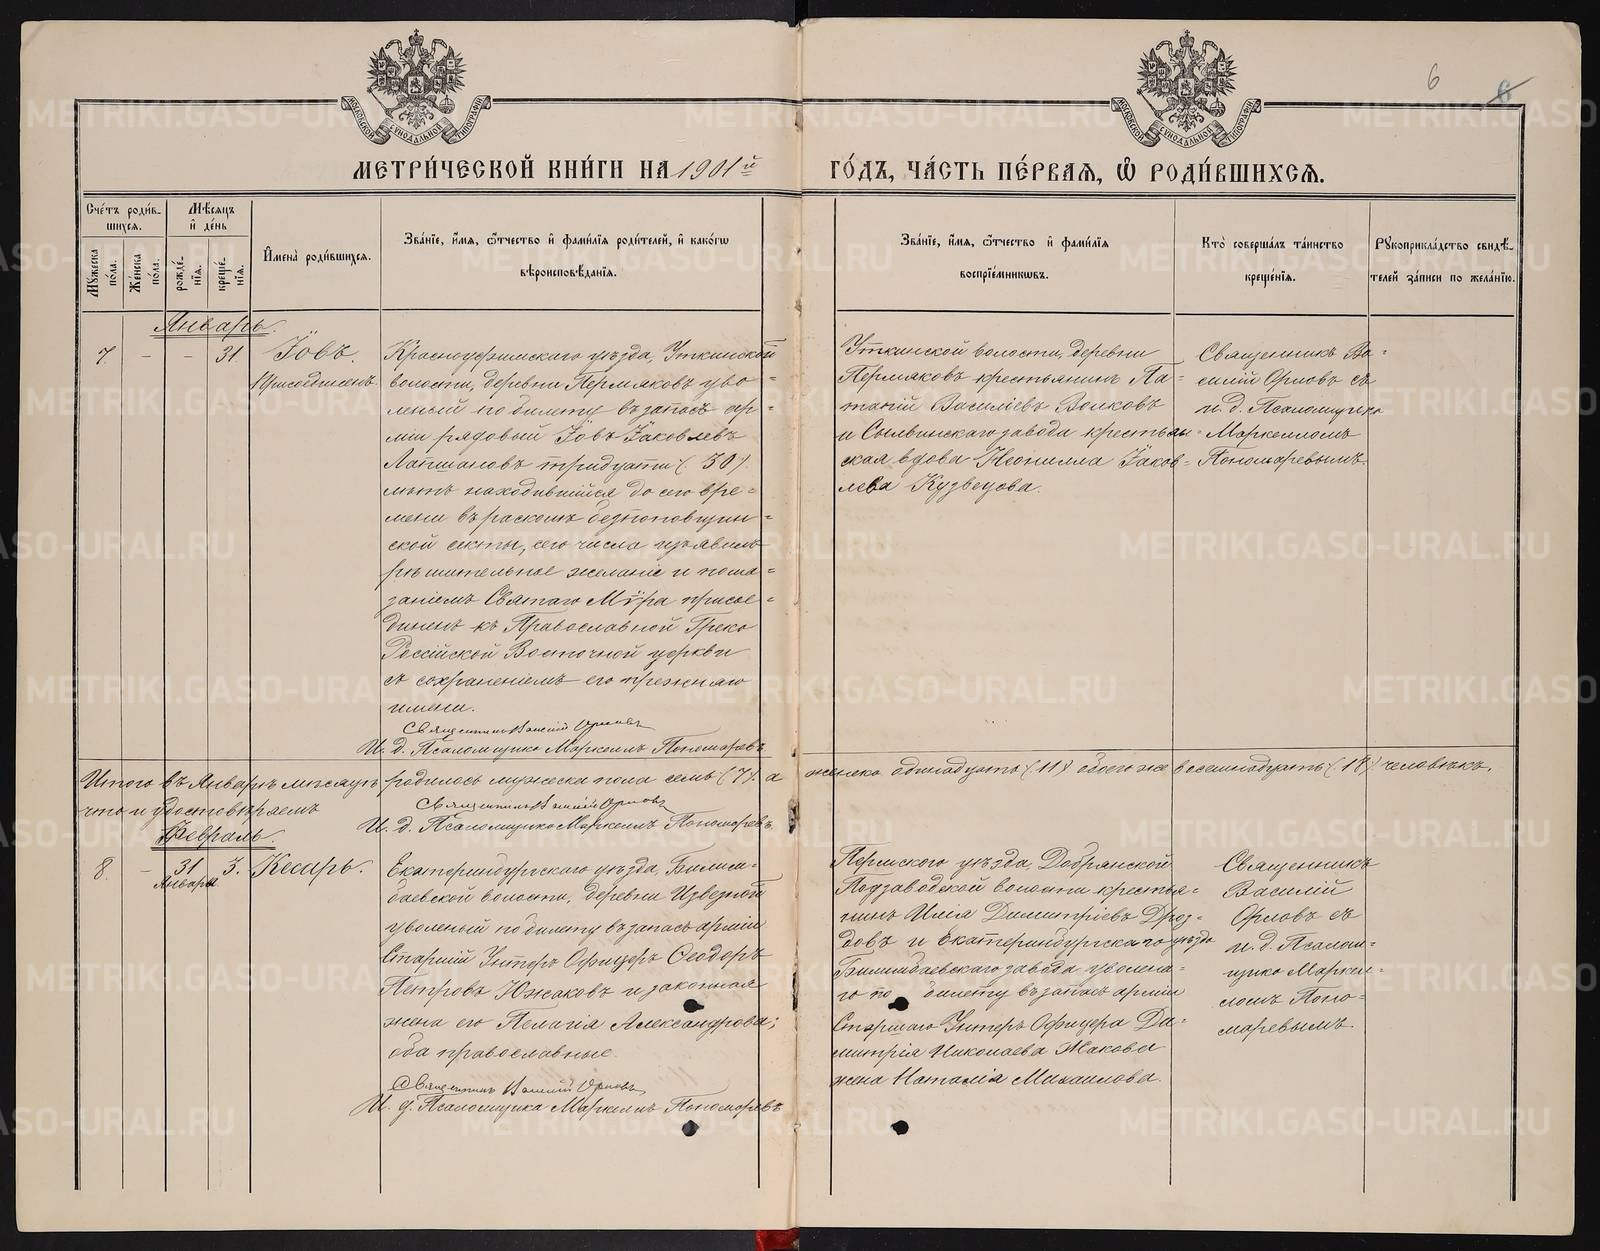 МОСКОВСКОЙ СѴНОДАЛЬНОЙ ТИПОГРАФІИ
МОСКОВСКОЙ СѴНОДАЛЬНОЙ ТИПОГРАФІИ
6
МЕТРИ́ЧЕСКОЙ КНИ́ГИ НА 1901й ГО́ДЪ, ЧА́СТЬ ПЕ́РВАѦ, Ѽ РОДИ́ВШИХСѦ.
Сче́тъ роди́вшихсѧ.
Мѣ́сѧцъ и҆ де́нь
Мꙋ́жеска по́ла.
Же́нска по́ла.
рожде́нїѧ.
креще́нїѧ.
И҆мена̀ роди́вшихсѧ.
Зва́нїе, и҆́мѧ, ѻ҆́тчество и҆ фами́лїѧ роди́телей, и҆ како́гѡ
вѣроисповѣ́данїѧ.
Зва́нїе, и҆́мѧ, ѻ҆́тчество и҆ фами́лїѧ
воспрїе́мникѡвъ.
Кто̀ соверша́лъ та́инство
креще́нїѧ.
Рꙋкоприкла́дство свидѣ́-
телей за́писи по жела́нїю.
Январь.
7. – – 31 Іовъ.
Присоединенъ
Красноуфимскаго уѣзда, Уткинской
волости, деревни Пермяковъ уво=
леный по билету въ запасъ ар=
міи рядовый Іовъ Іаковлевъ
Лапшановъ тридцати (30)
лѣтъ находившійся до сего вре=
мени въ расколѣ безпоповщин=
ской секты, сего числа изъявилъ
рѣшительное желаніе и пома=
заніемъ Святаго Мѵра присое=
диненъ къ Православной Греко
Россійской Восточной церкви
съ сохраненіемъ его прежняго
имени.
Священникъ Василій Орловъ
И. д. Псаломщика Маркеллъ Пономаревъ
Уткинской волости, деревни
Пермяковъ крестьянинъ Па=
тапій Василіевъ Волковъ
и Сылвинскаго завода крестьян=
ская вдова Неонилла Іаков=
лева Кузнецова.
Священникъ Ва=
силій Орловъ съ
и. д. Псаломщика
Маркелломъ
Пономаревымъ.
Итого въ Январѣ мѣсяцѣ родилось мужеска пола семь (7) а женска одинадцать (11) обоего же восемнадцать (18) человѣкъ,
что и удостовѣряемъ
Священникъ Василій Орловъ
И. д. Псаломщика Маркеллъ Пономаревъ.
Февраль.
8. – 31 3. Кесарь.
Января
Екатеринбургскаго уѣзда, Билим-
баевской волости, деревни Извезной
уволеный по билету въ запасъ арміи
Старшій Унтеръ Офицеръ Ѳеодоръ
Петровъ Южаковъ и законная
жена его Пелагія Александрова;
оба православные.
Священникъ Василій Орловъ
И. д. Псаломщика Маркеллъ Пономаревъ
Пермскаго уѣзда, Добрянской
Подзаводской волости крестья=
нинъ Илія Димитріевъ Дроз=
довъ и Екатеринбургскаго уѣзда
Билимбаевскаго завода уволена-
го по билету въ запасъ арміи
Старшаго Унтеръ Офицера Ди=
митрія Николаева Жакова
жена Наталія Михаилова.
Священникъ
Василій
Орловъ съ
и. д. Псалом=
щика Маркел=
ломъ Поно=
маревымъ.